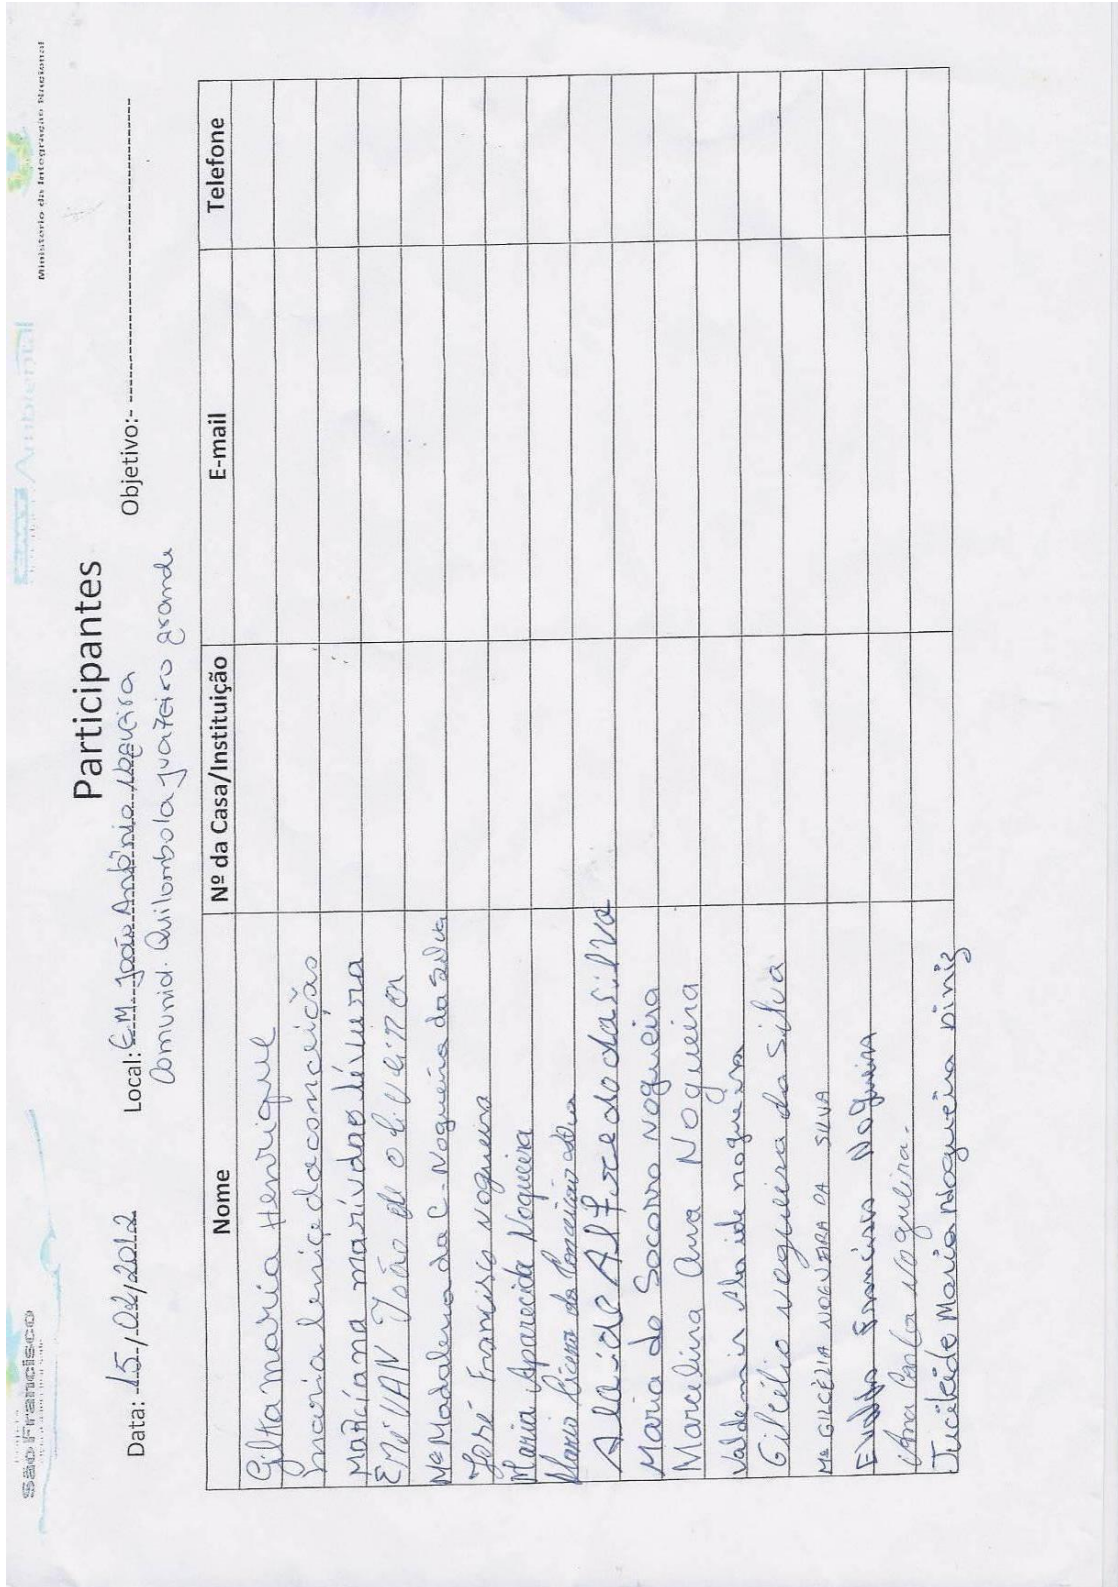 São Francisco
Ambiental
Ministério da Integração Nacional
Participantes
Data: 15/02/2012 Local: E.M. João Antônio Nogueira Objetivo:-
Comunid. Quilombola juazeiro grande
Nome Nº da Casa/Instituição E-mail Telefone
Gilta maria Henrique
maria lenice da conceição
Marciana
ERIVAN João de oliveira
Mª Madalena da C. Nogueira da Silva
José Francisco Nogueira
Maria Aparecida Nogueira
Cicera da Conceição silva
Alaide Alfredo da Silva
Maria do Socorro Nogueira
Marcelina Ana Nogueira
Valdemir Alaide nogueira
Gilcélio nogueira da silva
Mª GILCÉLIA NOGUEIRA DA SILVA
Francisco Nogueira
Ana Carla Nogueira.
Jucileide Maria Nogueira Diniz